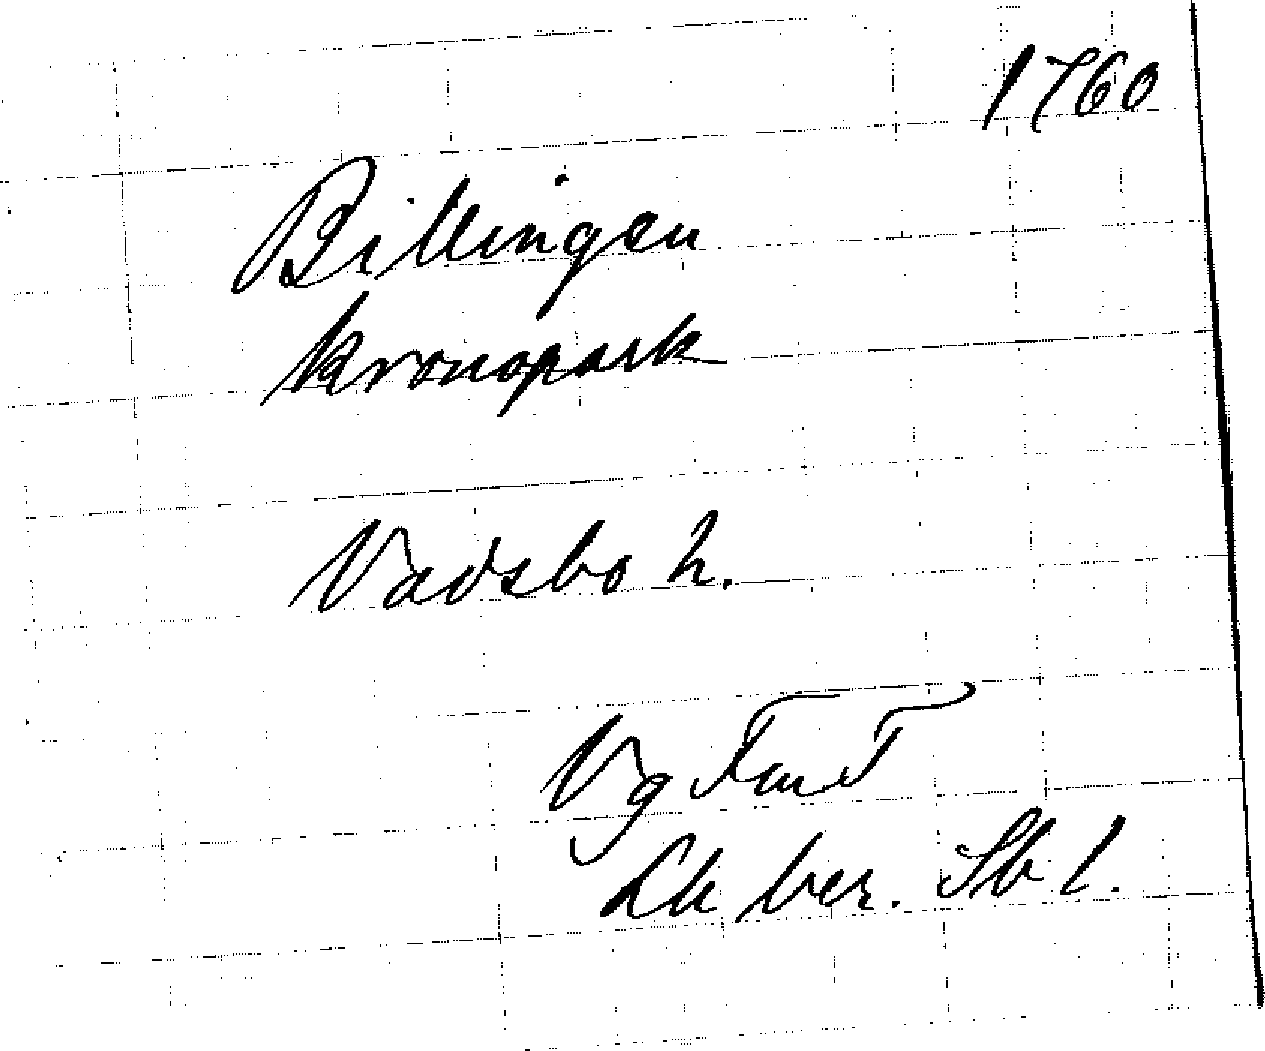 1760
Billingen
kronopark
Vadsbo h.
Vg
Lk ber. Sb 1.